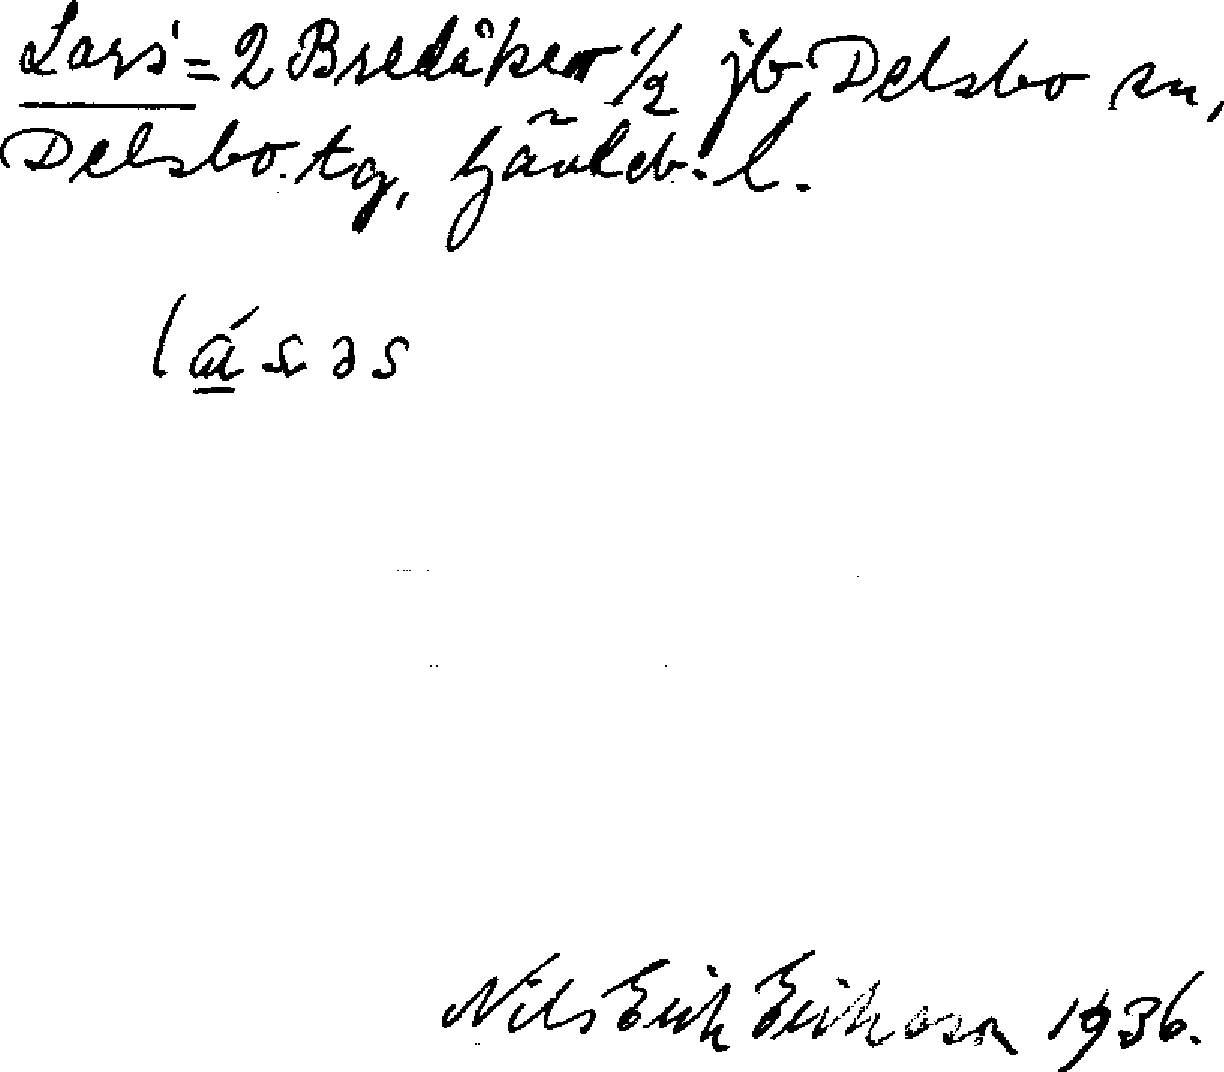 Lars' = 2 Bredåker 1/2 jb Delsbo sn,
Delsbo tg, Gävleb. l.
lásəs
Nils Erik Eriksson 1936.